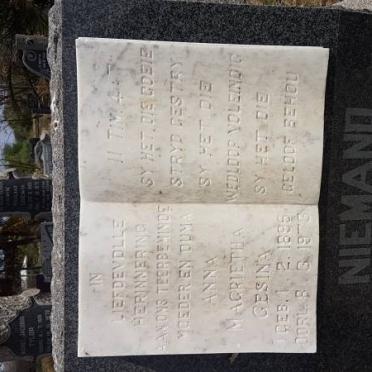 IN
LIEFDEVOLLE
HERINNERING
AAN ONS TEERBEMINDE
MOEDER EN OUMA
ANNA
MAGRIETHA
GESINA
GEB. 1. 2. 1895
OORL. 8. 3. 1975
II TIM. 4:7
SY HET DIE GOEIE
STRYD GESTRY
SY HET DIE
WEDLOOP VOLEINDIG
SY HET DIE
GELOOF BEHOU
NIEMAND